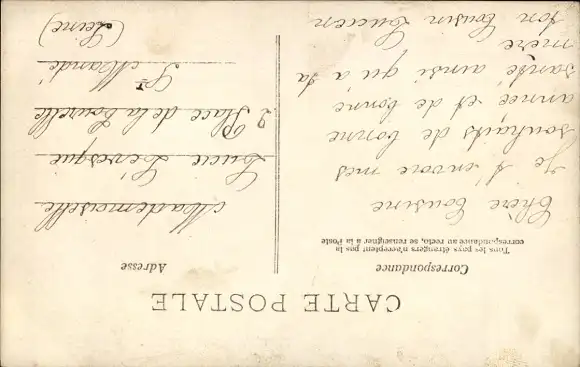 CARTE POSTALE
Correspondance
Tous les pays étrangers n'acceptent pas la
correspondance au recto, se renseigner à la Poste
Adresse
Chère Cousine
Je t'envoie mes
souhaits de bonne
année et de bonne
santé ainsi qu'à ta
mère
ton Cousin Lucien
Mademoiselle
Lucie Levesque
2 Place de la Tourelle
St Mandé
(Seine)